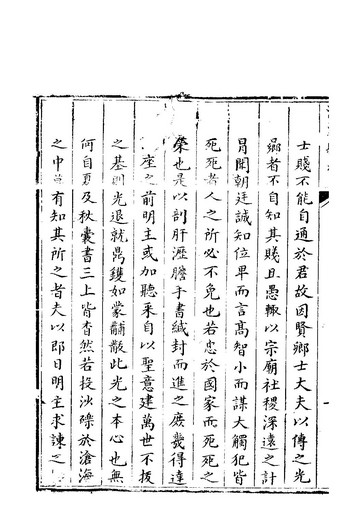 士賤不能自通於君故因賢鄉士大夫以傳之光
者不自知其賤且愚輒以宗廟社稷深遠之計
冒聞朝廷誠知位卑而言高智小而謀大觸犯皆
死死者人之所必不免也若忠於國家而死死之
榮也是以剖肝瀝膽手書緘封而進之庶幾得達
座之前明主或加聽采自以聖意建萬世不拔
之基則光退就鼎鑊如蒙黼黻此光之本心也無
何自夏及秋囊書三上皆杳然若投沙礫於滄海
之中莫有知其所之者夫以即日明主求諫之